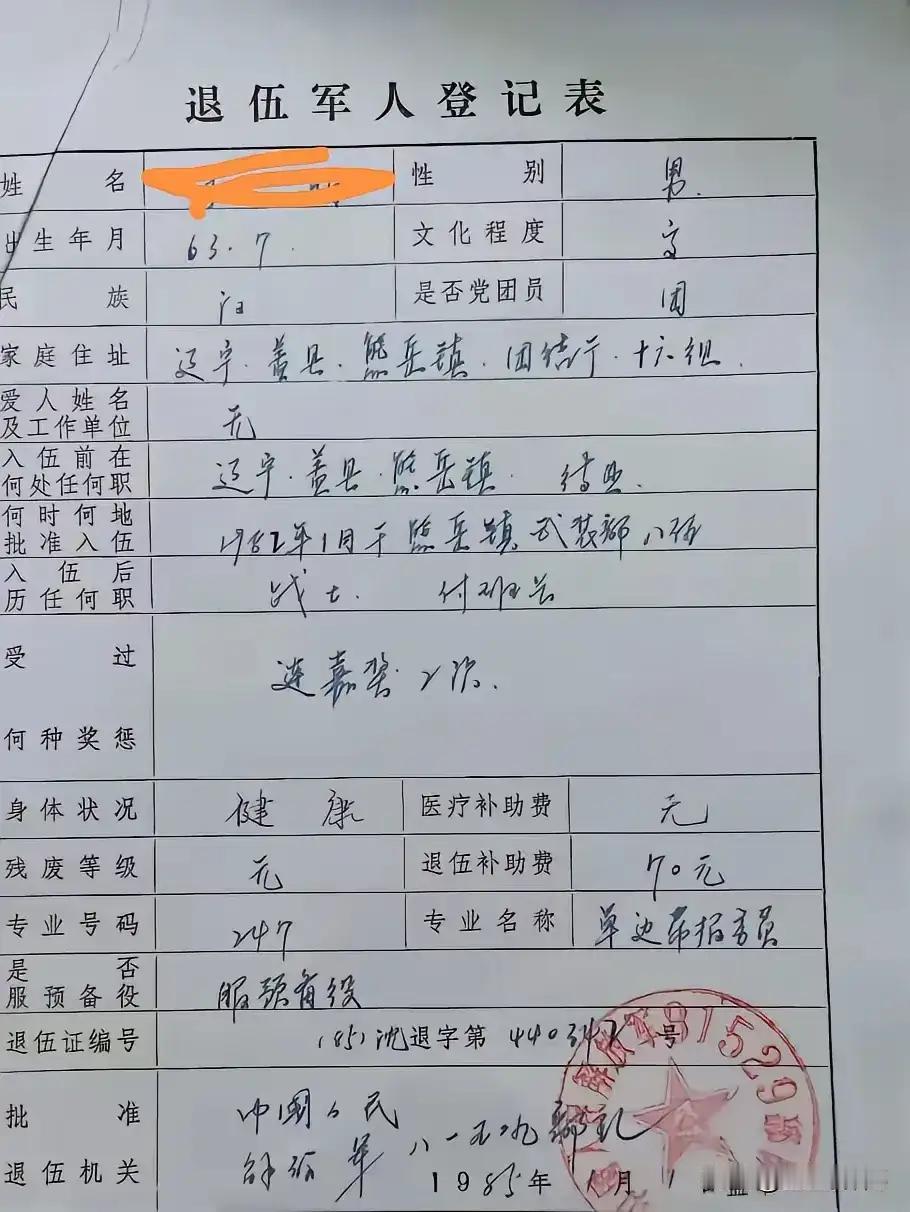 退伍军人登记表
姓名 性别 男.
出生年月 63.7. 文化程度 高
民族 汉 是否党团员 团
家庭住址 辽宁.盖县.熊岳镇.团结厅.十六组.
爱人姓名
及工作单位 无
入伍前在
何处任何职 辽宁.盖县.熊岳镇. 待业.
何时何地
批准入伍 1982年1月于熊岳镇武装部入伍
入伍后
历任何职 战士. 付班长
受过
何种奖惩 连嘉奖2次.
身体状况 健康 医疗补助费 无
残废等级 无 退伍补助费 70元
专业号码 247 专业名称 单边带报务员
是否
服预备役 服预备役
退伍证编号 (85)沈退字第440347号
批准
退伍机关 中国人民
解放军 八一五二九部队
1985年1月1日盖章
解放军81529部队